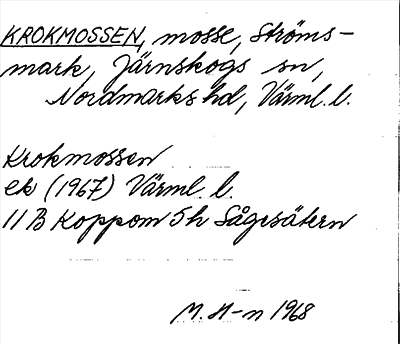 KROKMOSSEN, mosse, Ströms-
mark, Järnskogs sn,
Nordmarks hd, Värml. l.
Krokmossen
ek (1967) Värml. l.
11 B Koppom 5h Sågesätern
M. H-n 1968